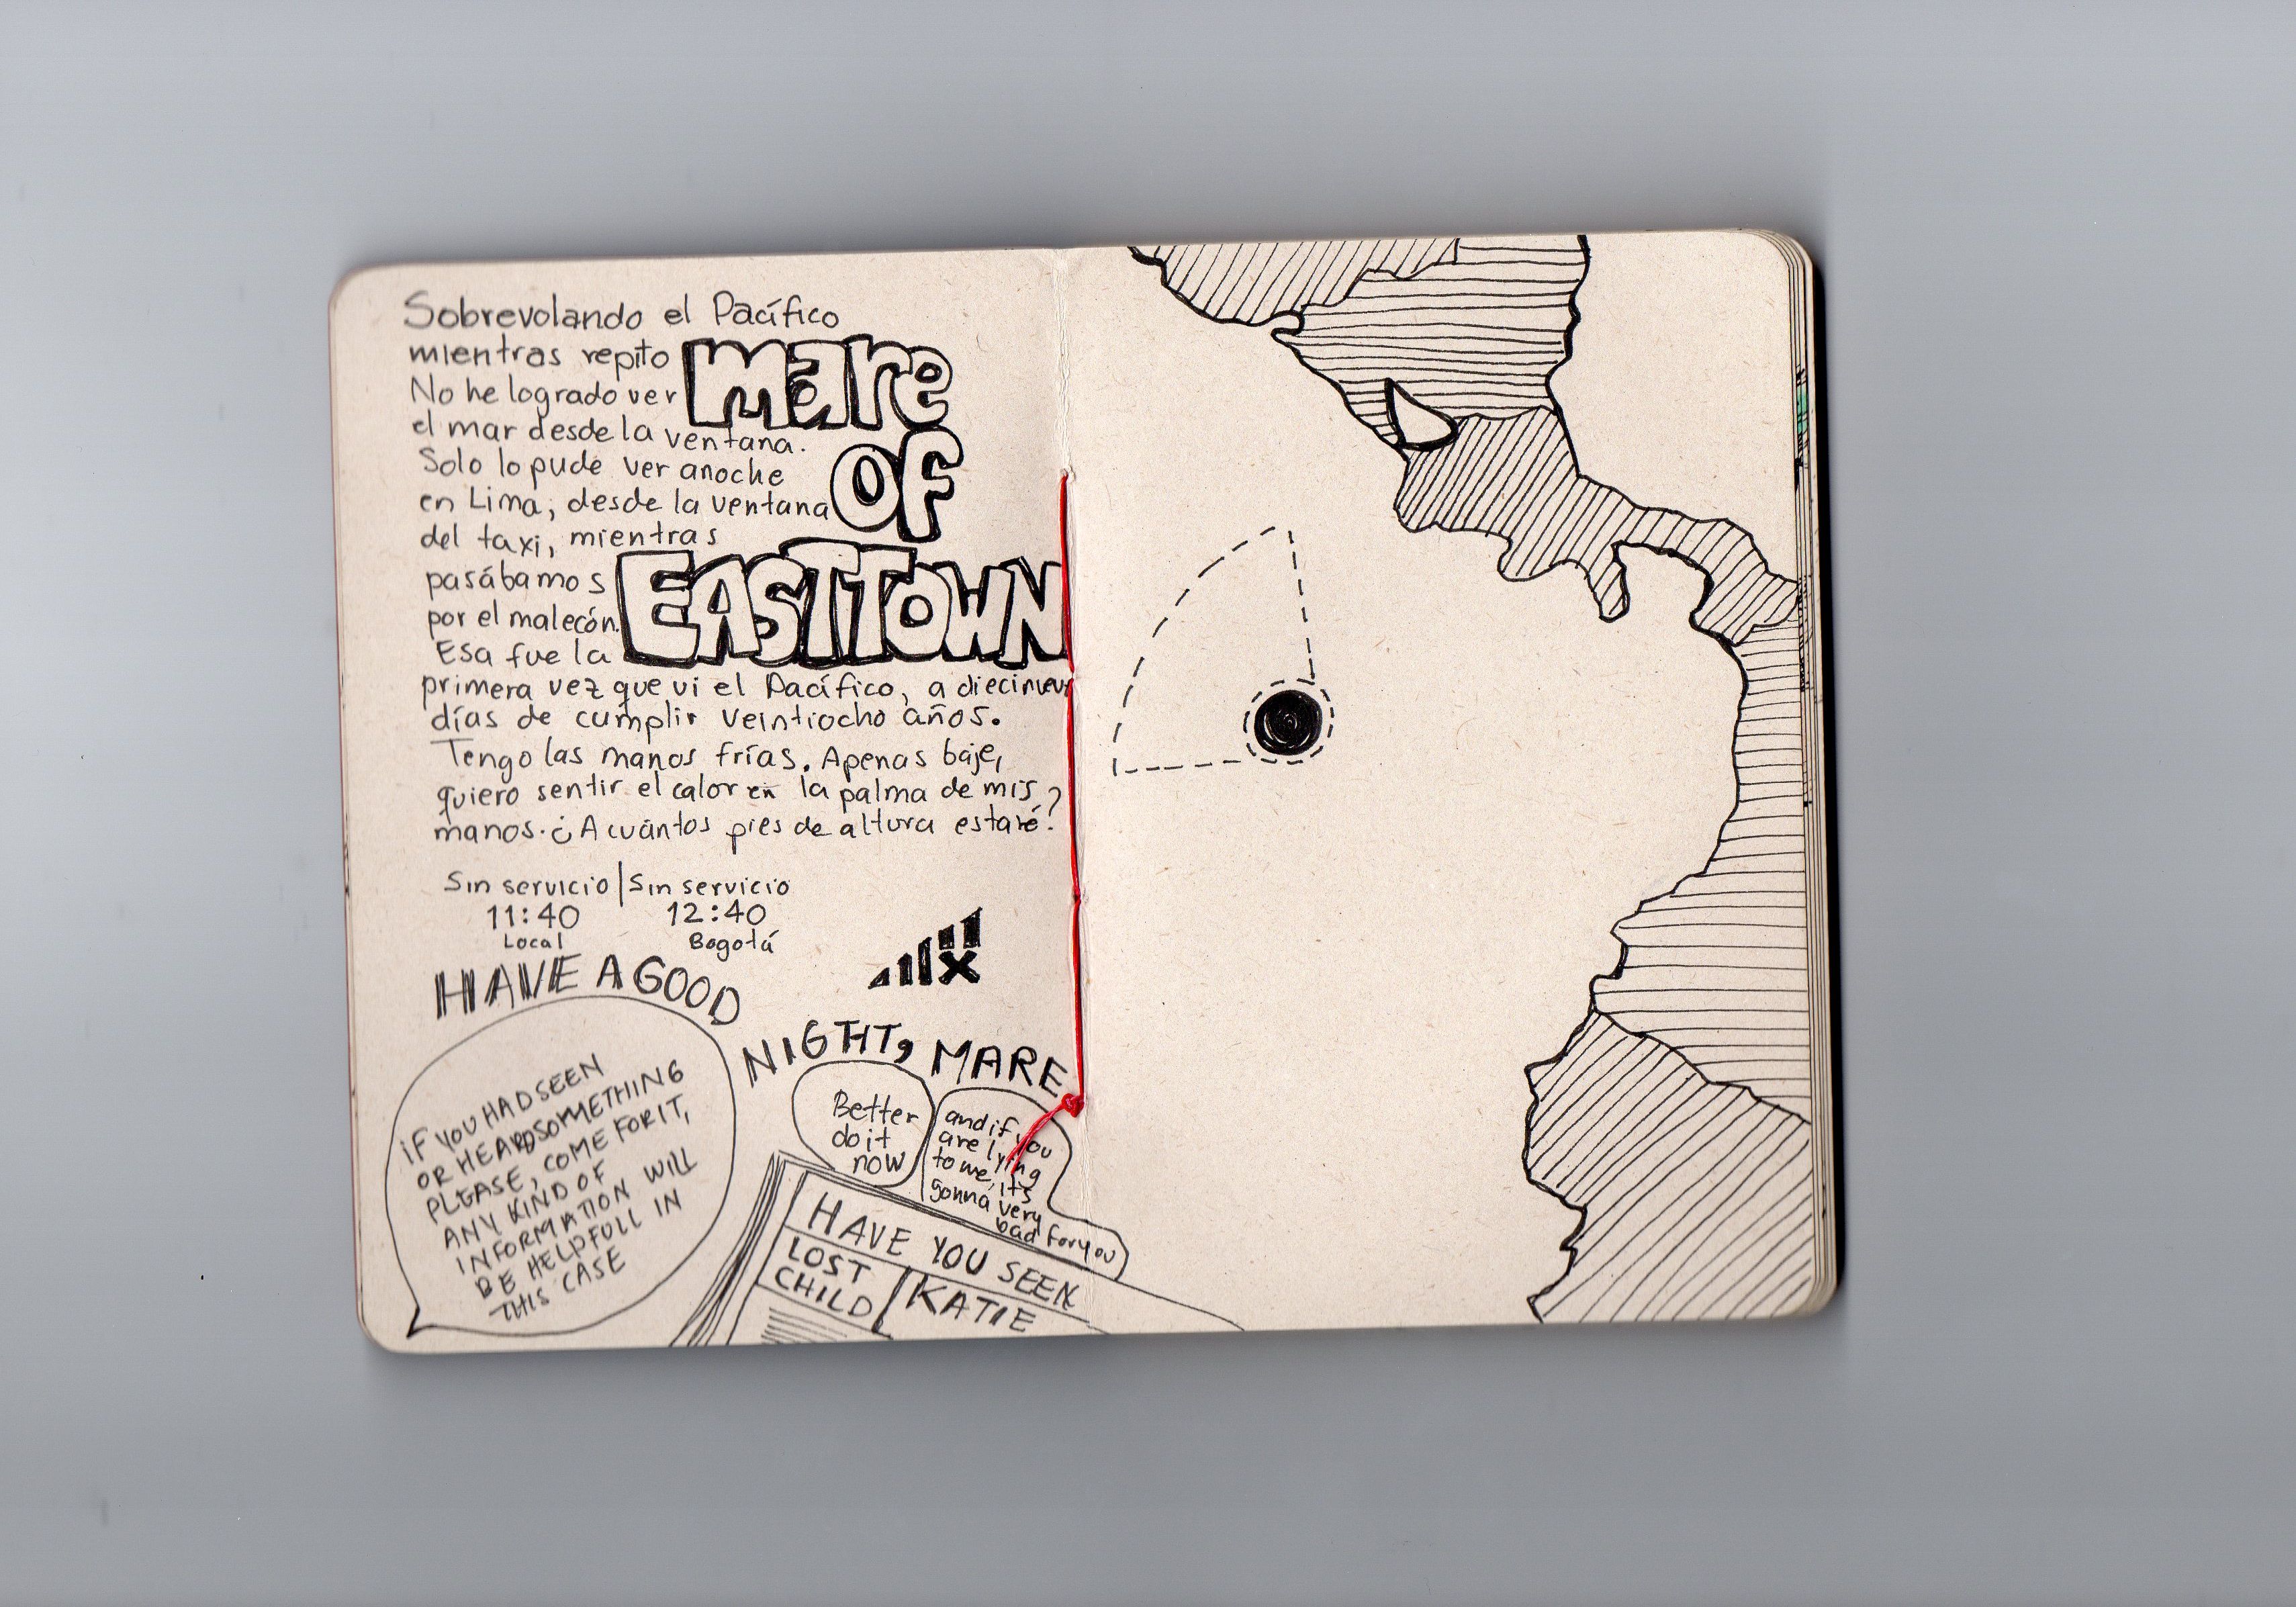 Sobrevolando el Pacífico
mientras repito
mare
No he logrado ver
el mar desde la ventana.
of
Solo lo pude ver anoche
en Lima, desde la ventana
del taxi, mientras
pasábamos
EASTTOWN
por el malecón.
Esa fue la
primera vez que vi el Pacífico, a diecinueve
días de cumplir veintiocho años.
Tengo las manos frías. Apenas baje,
quiero sentir el calor en la palma de mis
manos. ¿A cuántos pies de altura estaré?
Sin servicio | Sin servicio
11:40 12:40
Local Bogotá
HAVE A GOOD
NIGHT, MARE
IF YOU HAD SEEN
OR HEARD SOMETHING
PLEASE, COME FOR IT,
ANY KIND OF
INFORMATION WILL
BE HELPFULL IN
THIS CASE
Better
do it
now
and if you
are lying
to me, it's
gonna very
bad for you
HAVE YOU SEEN
LOST
CHILD
KATIE